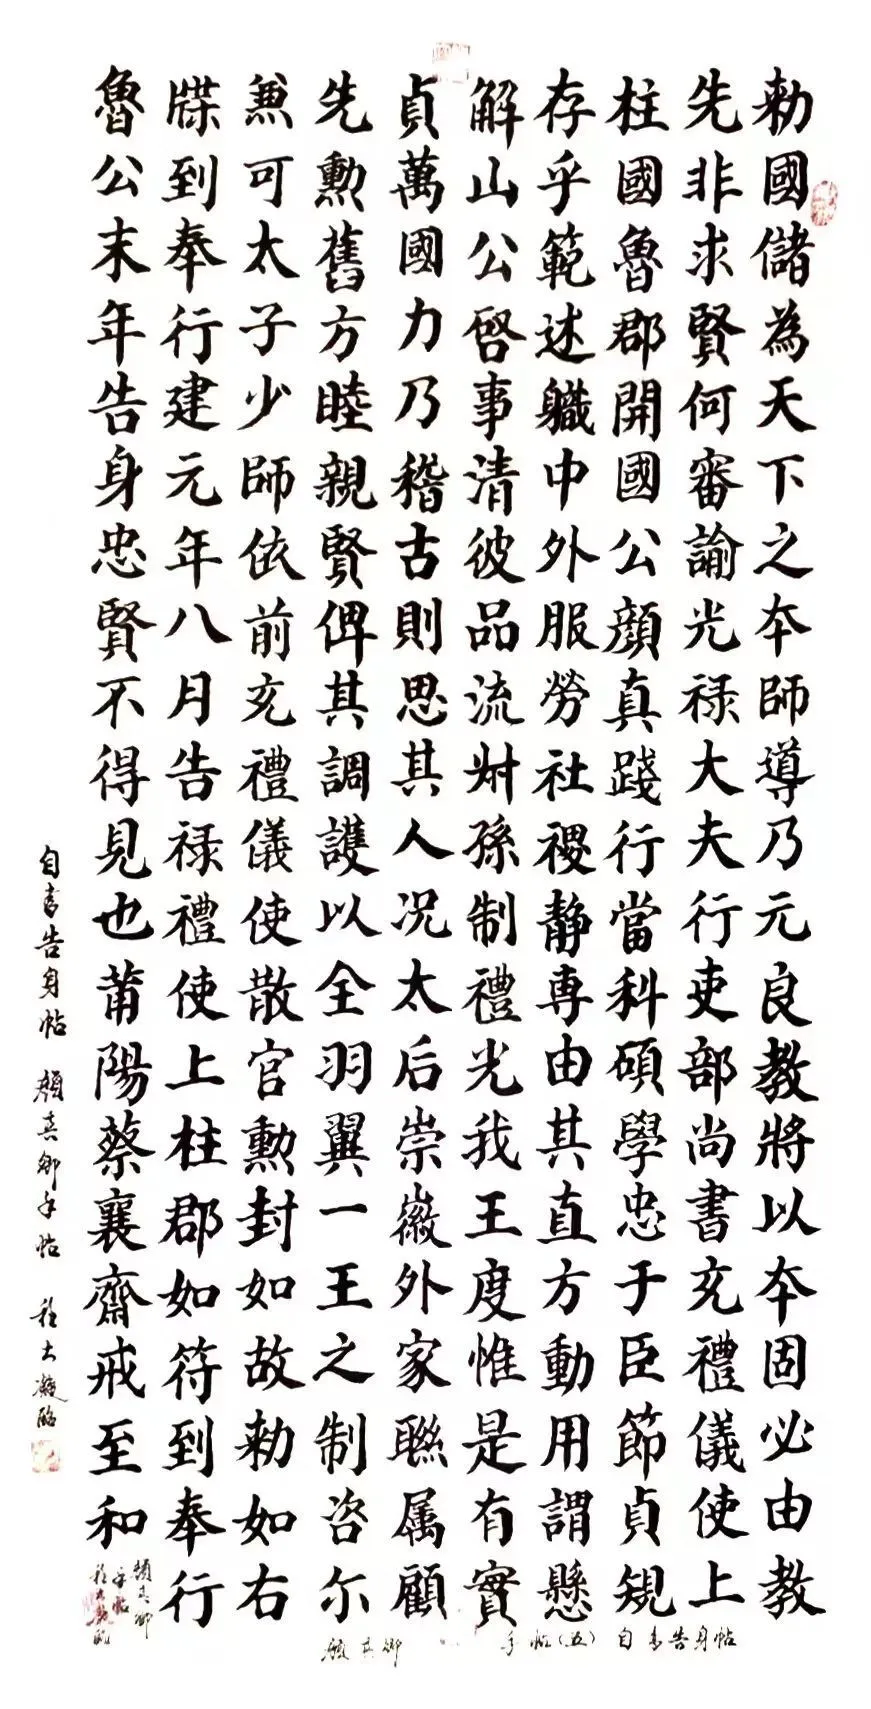 勑國儲為天下之夲師導乃元良教將以夲固必由教
先非求賢何審諭光禄大夫行吏部尚書充禮儀使上
柱國魯郡開國公顔真踐行當科碩學忠于臣節貞規
存乎範述職中外服勞社稷静専由其直方動用謂懸
解山公啓事清彼品流孫制禮光我王度惟是有實
貞萬國力乃稽古則思其人况太后崇徽外家聯属顧
先勲舊方睦親賢俾其調護以全羽翼一王之制咨尔
兼可太子少師依前充禮儀使散官勲封如故勑如右
牒到奉行建元年八月告禄禮使上柱郡如符到奉行
魯公末年告身忠賢不得見也莆陽蔡襄齋戒至和
顔真卿
手帖
自書告身帖 顔真卿手帖
顔真卿 手帖(五) 自書告身帖